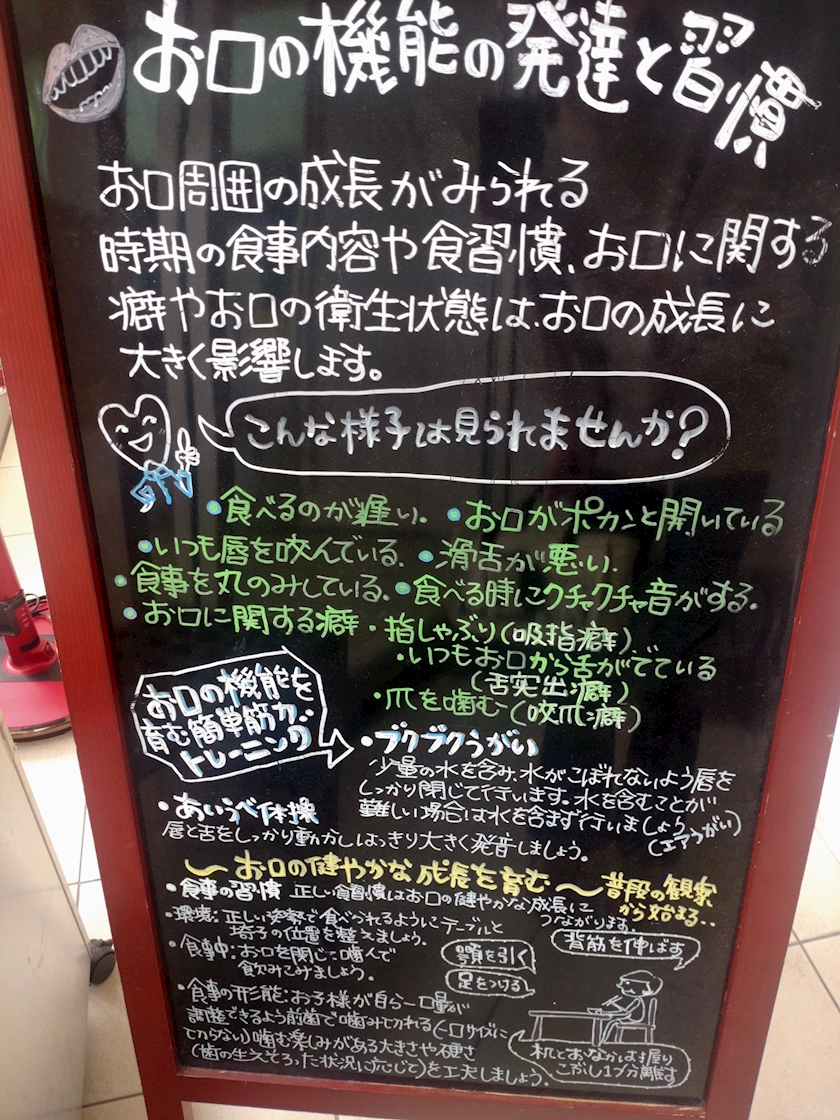 お口の機能の発達と習慣
お口周囲の成長がみられる
時期の食事内容や食習慣、お口に関する
癖やお口の衛生状態は、お口の成長に
大きく影響します。
こんな様子は見られませんか?
・食べるのが遅い。 ・お口がポカンと開いている
・いつも唇を咬んでいる。 ・滑舌が悪い。
・食事を丸のみしている。 ・食べる時にクチャクチャ音がする。
・お口に関する癖・指しゃぶり(吸指癖)
・いつもお口から舌がでている
(舌突出癖)
・爪を噛む(咬爪癖)
お口の機能を
育む簡単筋力
トレーニング
・ブクブクうがい
少量の水を含み、水がこぼれないよう唇を
しっかり閉じて行います。水を含むことが
難しい場合は水を含まず行いましょう
(エアうがい)
・あいうべ体操
唇と舌をしっかり動かしはっきり大きく発音しましょう。
〜お口の健やかな成長を育む〜普段の観察
から始まる..
・食事の習慣 正しい食習慣はお口の健やかな成長に
つながります。
・環境:正しい姿勢で食べられるようにテーブルと
椅子の位置を整えましょう。
・食事中:お口を閉じて噛んで
飲みこみましょう。
顎を引く
足をつける
背筋を伸ばす
・食事の形態:お子様が自ら一口量が
調整できるよう前歯で噛みきれる(一口サイズに
てらない)噛む楽しみがある大きさや硬さ
(歯の生えそろった状況に応じて)を工夫しましょう。
机とおなかは握り
こぶし1つ分離す